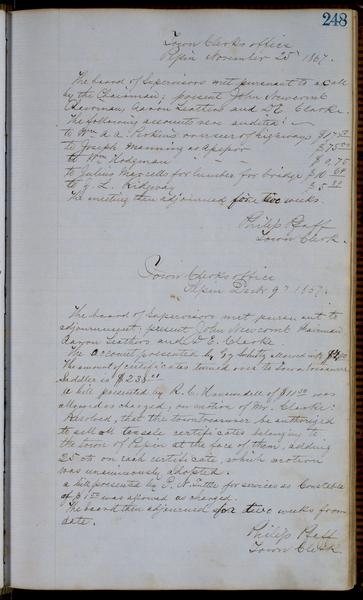 248
Town Clerks office
Pepin November 25th 1867.
The board of Supervisors met pursuant to a call
by the Chairman; present John Newcomb
Chairman, Aaron Leathers and D. E. Clarke.
The following accounts were audited:
to Wm A. A. Perkins overseer of highways
to Joseph Manning as
to Wm Hodgman " " $9,75
to Julius Maxcells for lumber for bridge
to J. L. Ridgway
The meeting then adjourned for two weeks.
Philip Haff
Town Clerk.
Town Clerks office
Pepin Decbr 9th 1867.
The board of Supervisors met pursuant to
adjournment; present John Newcomb Chairman
Aaron Leathers and D. E. Clarke
The account presented by allowed
The amount of certificates turned over to Town treasurer
is
A bill presented by R. C. of $11.50 was
allowed as charged, on motion of Mr. Clarke:
Resolved, that the town treasurer be authorized
to sell all taxed certificates belonging to
the town of Pepin at the face of them, adding
25 cts on each certificate, which motion
was unanimously adopted.
a bill presented by P. N. Tuttle for services as Constable
of was allowed as charged.
The board then adjourned for two weeks from
date.
Philip Haff
Town Clerk.